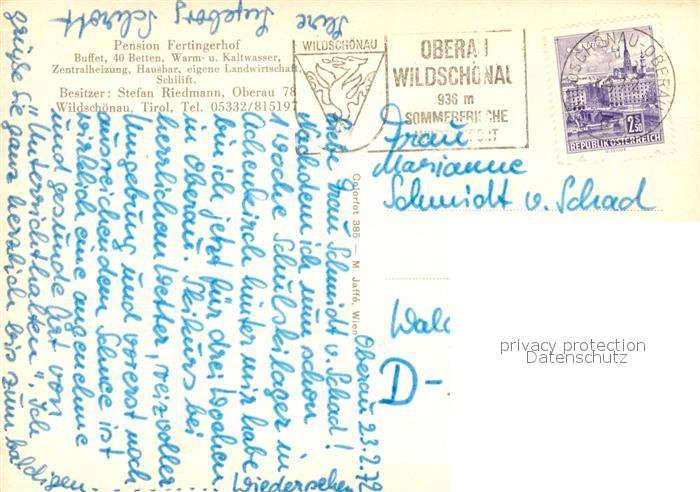 Pension Fertingerhof
Buffet, 40 Betten, Warm- u. Kaltwasser,
Zentralheizung, Hausbar, eigene Landwirtschaft,
Schilift.
Besitzer: Stefan Riedmann, Oberau 78
Wildschönau, Tirol, Tel. 05332/815197
WILDSCHÖNAU
OBERAU
WILDSCHÖNAU
936 m
SOMMERFRISCHE
WILDSCHÖNAU-OBERAU
2.50
REPUBLIK ÖSTERREICH
Frau
Marianne
Schmidt v. Schad
Wald
D-
privacy protection
Datenschutz
Colorfot 385 — M. Jaffé, Wien
Oberau 23.2.72
Liebe Frau Schmidt v. Schad!
Nachdem ich nun schon
1 Woche Schulskilager in
Achenkirch hinter mir habe
bin ich jetzt für drei Wochen
in Oberau. Skikurs bei
herrlichem Wetter, reizvoller
Umgebung und vorerst noch
ausreichendem Schnee ist
wirklich eine angenehme
und gesunde Art von
"Unterricht halten". Ich
grüße Sie ganz herzlich bis zum baldigen
Wiedersehen
Ingeborg Schrott